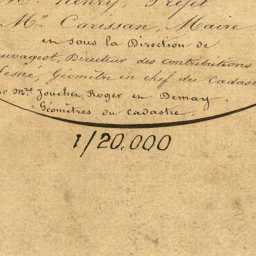 Mr Henry, Préfet
Mr Carissan, Maire
en sous la Direction de
auvageot, Directeur des contributions
Géomètre en chef du Cadas
Mrs Joucha Roger en Demay
Géomètres du cadastre.
1/20.000